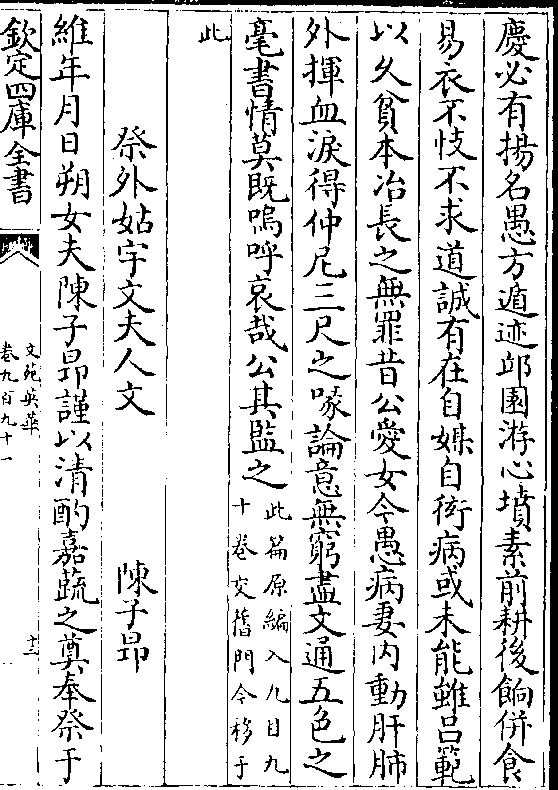 慶必有揚名愚方遁迹邱園游心墳素前耕後餉併食
易衣不忮不求道誠有在自媒自衒病或未能雖呂範
以久貧本冶長之無罪昔公愛女今愚病妻内動肝肺
外揮血淚得仲尼三尺之喙論意無窮盡文通五色之
毫書情莫既嗚呼哀哉公其監之此篇原編入九百九
十卷交舊門今移于
此
祭外姑宇文夫人文 陳子昻
維年月日朔女夫陳子昻謹以清酌嘉蔬之奠奉祭于
欽定四庫全書
文苑英華
卷九百九十一
十三